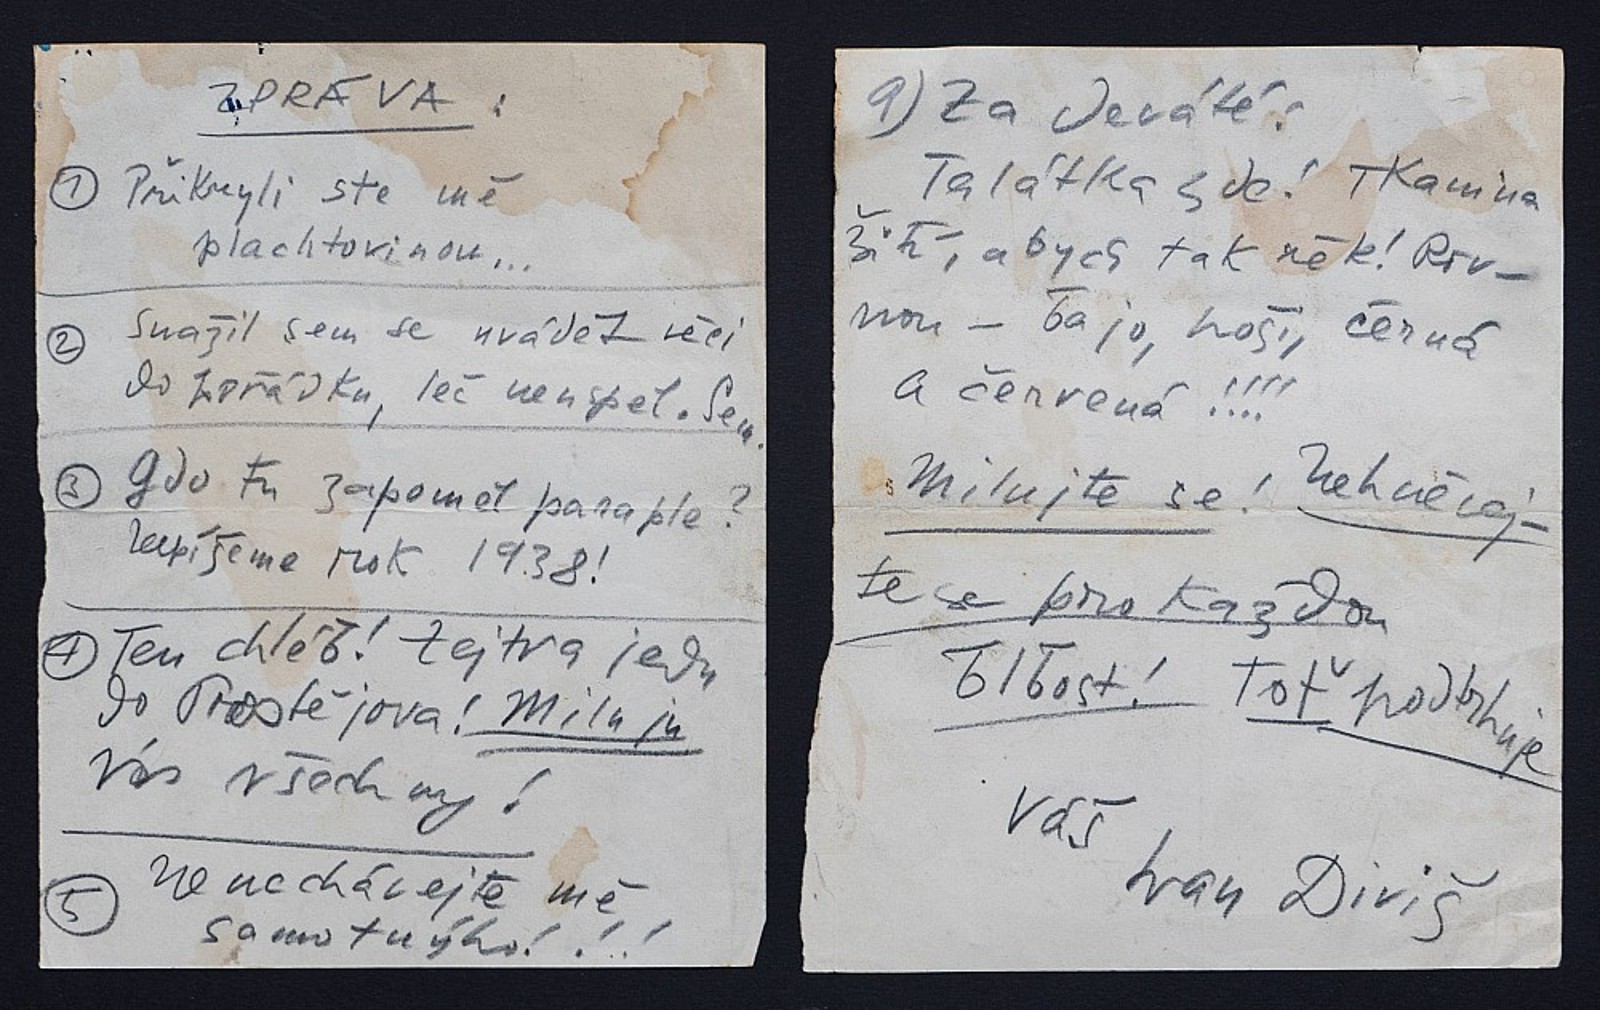 ZPRÁVA :
1 Přikryli ste mě
plachtovinou...
2 Snažil sem se uvádět věci
do pořádku, leč neuspěl. Sem.
3 Gdo tu zapoměl paraple?
Nepíšeme rok 1938!
4 Ten chléb! Zejtra jedu
do Prostějova! Miluju
Vás všechny!
5 Nenechávejte mě
samotnýho! ! !
9) Za deváté:
Talátka zde! Tkanina
žití, abych tak řék! Rov-
nou - ba jo, hoši, černá
a červená !!!!
Milujte se! Nehněvej-
te se pro každou
blbost! Toť podtrhuje
Váš
Ivan Diviš